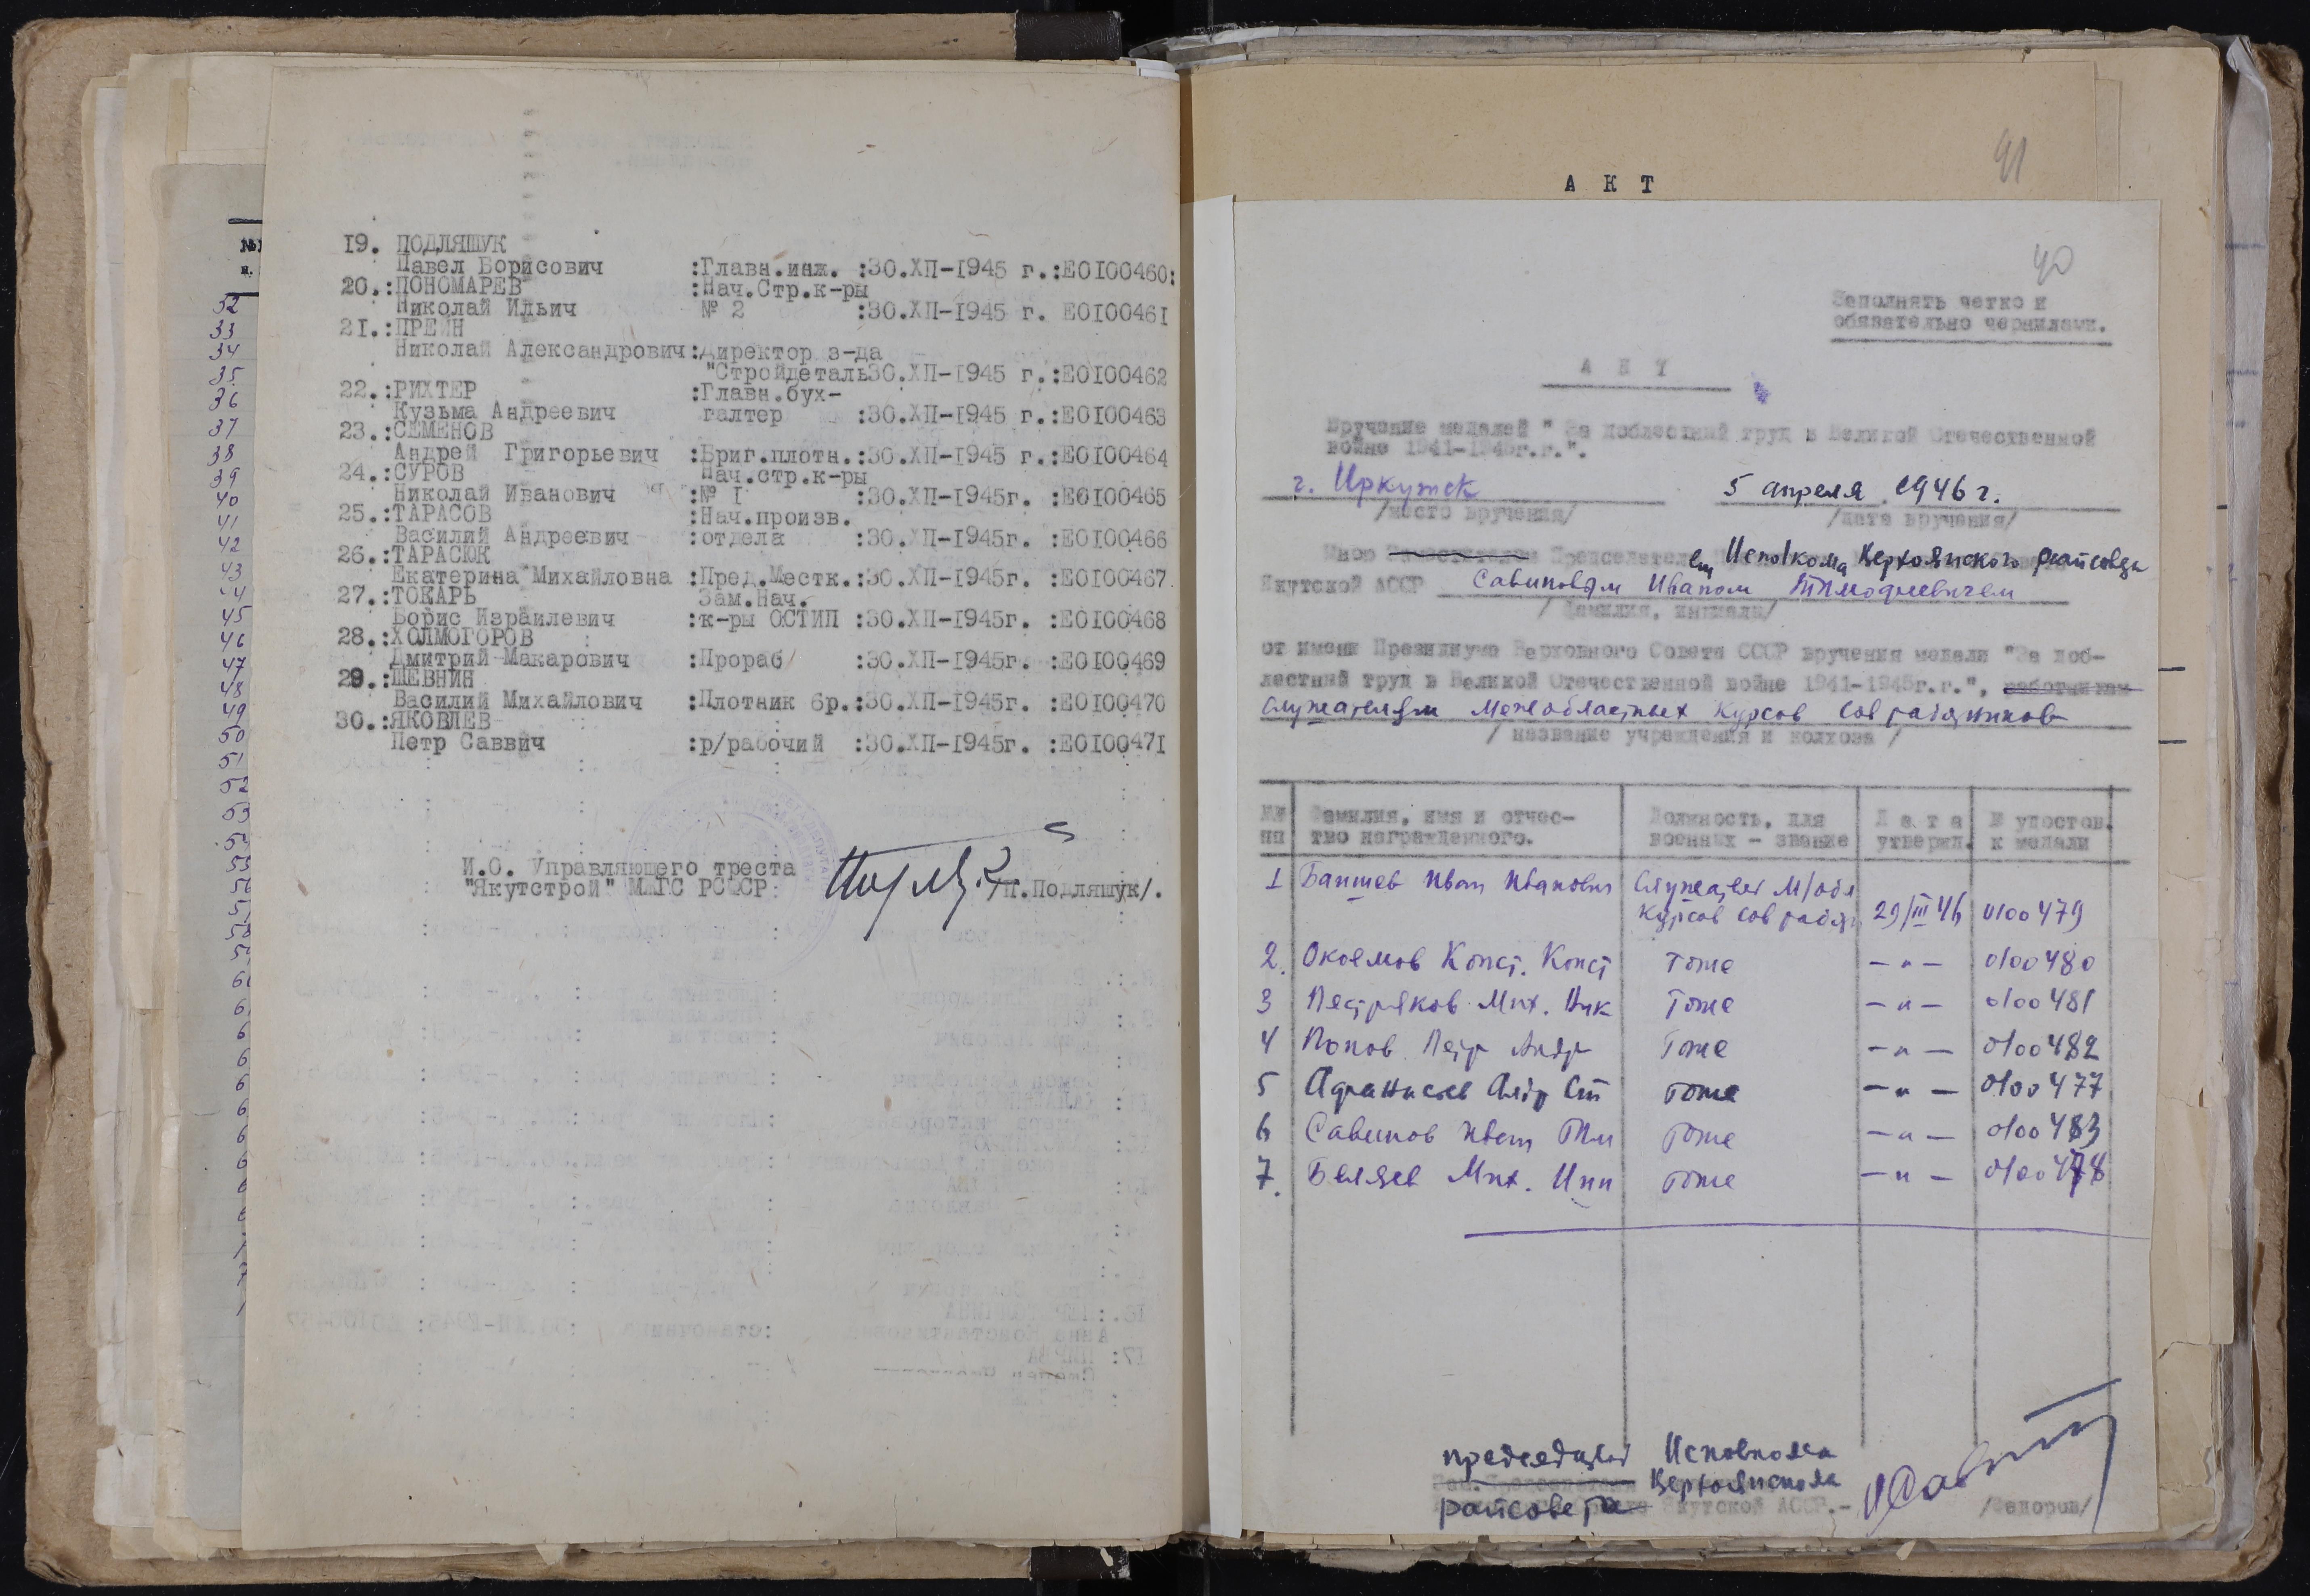 19. ПОДЛЯШУК
Павел Борисович :Главн.инж. :30.ХП-1945 г.:Е0100460:
20.:ПОНОМАРЕВ :Нач.Стр.к-ры
Николай Ильич № 2 :30.ХП-1945 г. Е0100461
21.:ПРЕЙН
Николай Александрович:Директор з-да
"Стройдеталь30.ХП-1945 г.:Е0100462
22.:РИХТЕР :Главн.бух-
Кузьма Андреевич галтер :30.ХП-1945 г.:Е0100463
23.:СЕМЕНОВ
Андрей Григорьевич :Бриг.плотн.:30.ХП-1945 г.:Е0100464
24.:СУРОВ Нач.стр.к-ры
Николай Иванович :№ 1 :30.ХП-1945г. :Е0100465
25.:ТАРАСОВ :Нач.произв.
Василий Андреевич :отдела :30.ХП-1945г. :Е0100466
26.:ТАРАСЮК
Екатерина Михайловна :Пред.Местк.:30.ХП-1945г. :Е0100467
27.:ТОКАРЬ Зам.Нач.
Борис Израилевич :к-ры ОСТИП :30.ХП-1945г. :Е0100468
28.:ХОЛМОГОРОВ :
Дмитрий Макарович :Прораб :30.ХП-1945г. :Е0100469
29.:ШЕВНИН
Василий Михайлович :Плотник 6р.:30.ХП-1945г. :Е0100470
30.:ЯКОВЛЕВ
Петр Саввич :р/рабочий :30.ХП-1945г. :Е0100471
И.О. Управляющего треста
"Якутстрой" МЖГС РСФСР: /П.Подляшук/.
52
33
34
35
36
37
38
39
40
41
42
43
44
45
46
47
48
49
50
51
52
53
54
55
41
А К Т
40
Заполнять четко и
обязательно чернилами.
А К Т
Вручение медалей " За доблестный труд в Великой Отечественной
войне 1941-1945г.г.".
г. Иркутск 5 апреля 1946 г.
/место вручения/ /дата вручения/
Мною Председателем Исполкома Верхоянского райсовета
Якутской АССР Савиновым Иваном Тимофеевичем
/ Фамилия, инициалы/
от имени Президиума Верховного Совета СССР вручения медали "За доб-
лестный труд в Великой Отечественной войне 1941-1945г.г.", работникам
слушателям Межобластных Курсов Совработников
/ название учреждения и колхоза /
№№ Фамилия, имя и отчес- Должность, для Д а т а № удостов.
пп тво награжденного. военных - звание утвержд. к медали
1 Баишев Иван Иванович Слушател М/обл
Курсов Совработн 29/III 46 0100479
2. Окоемов Конст. Конст Тоже -"- 0100480
3 Пестряков Мих. Ник Тоже -"- 0100481
4 Попов Петр Андр Тоже -"- 0100482
5 Афанасьев Алдр Ст Тоже -"- 0100477
6 Савинов Иван Тим Тоже -"- 0100483
7. Беляев Мих. Инн Тоже -"- 0100478
председател Исполкома
Верхоянского
райсовета Якутской АССР.- /Федоров/